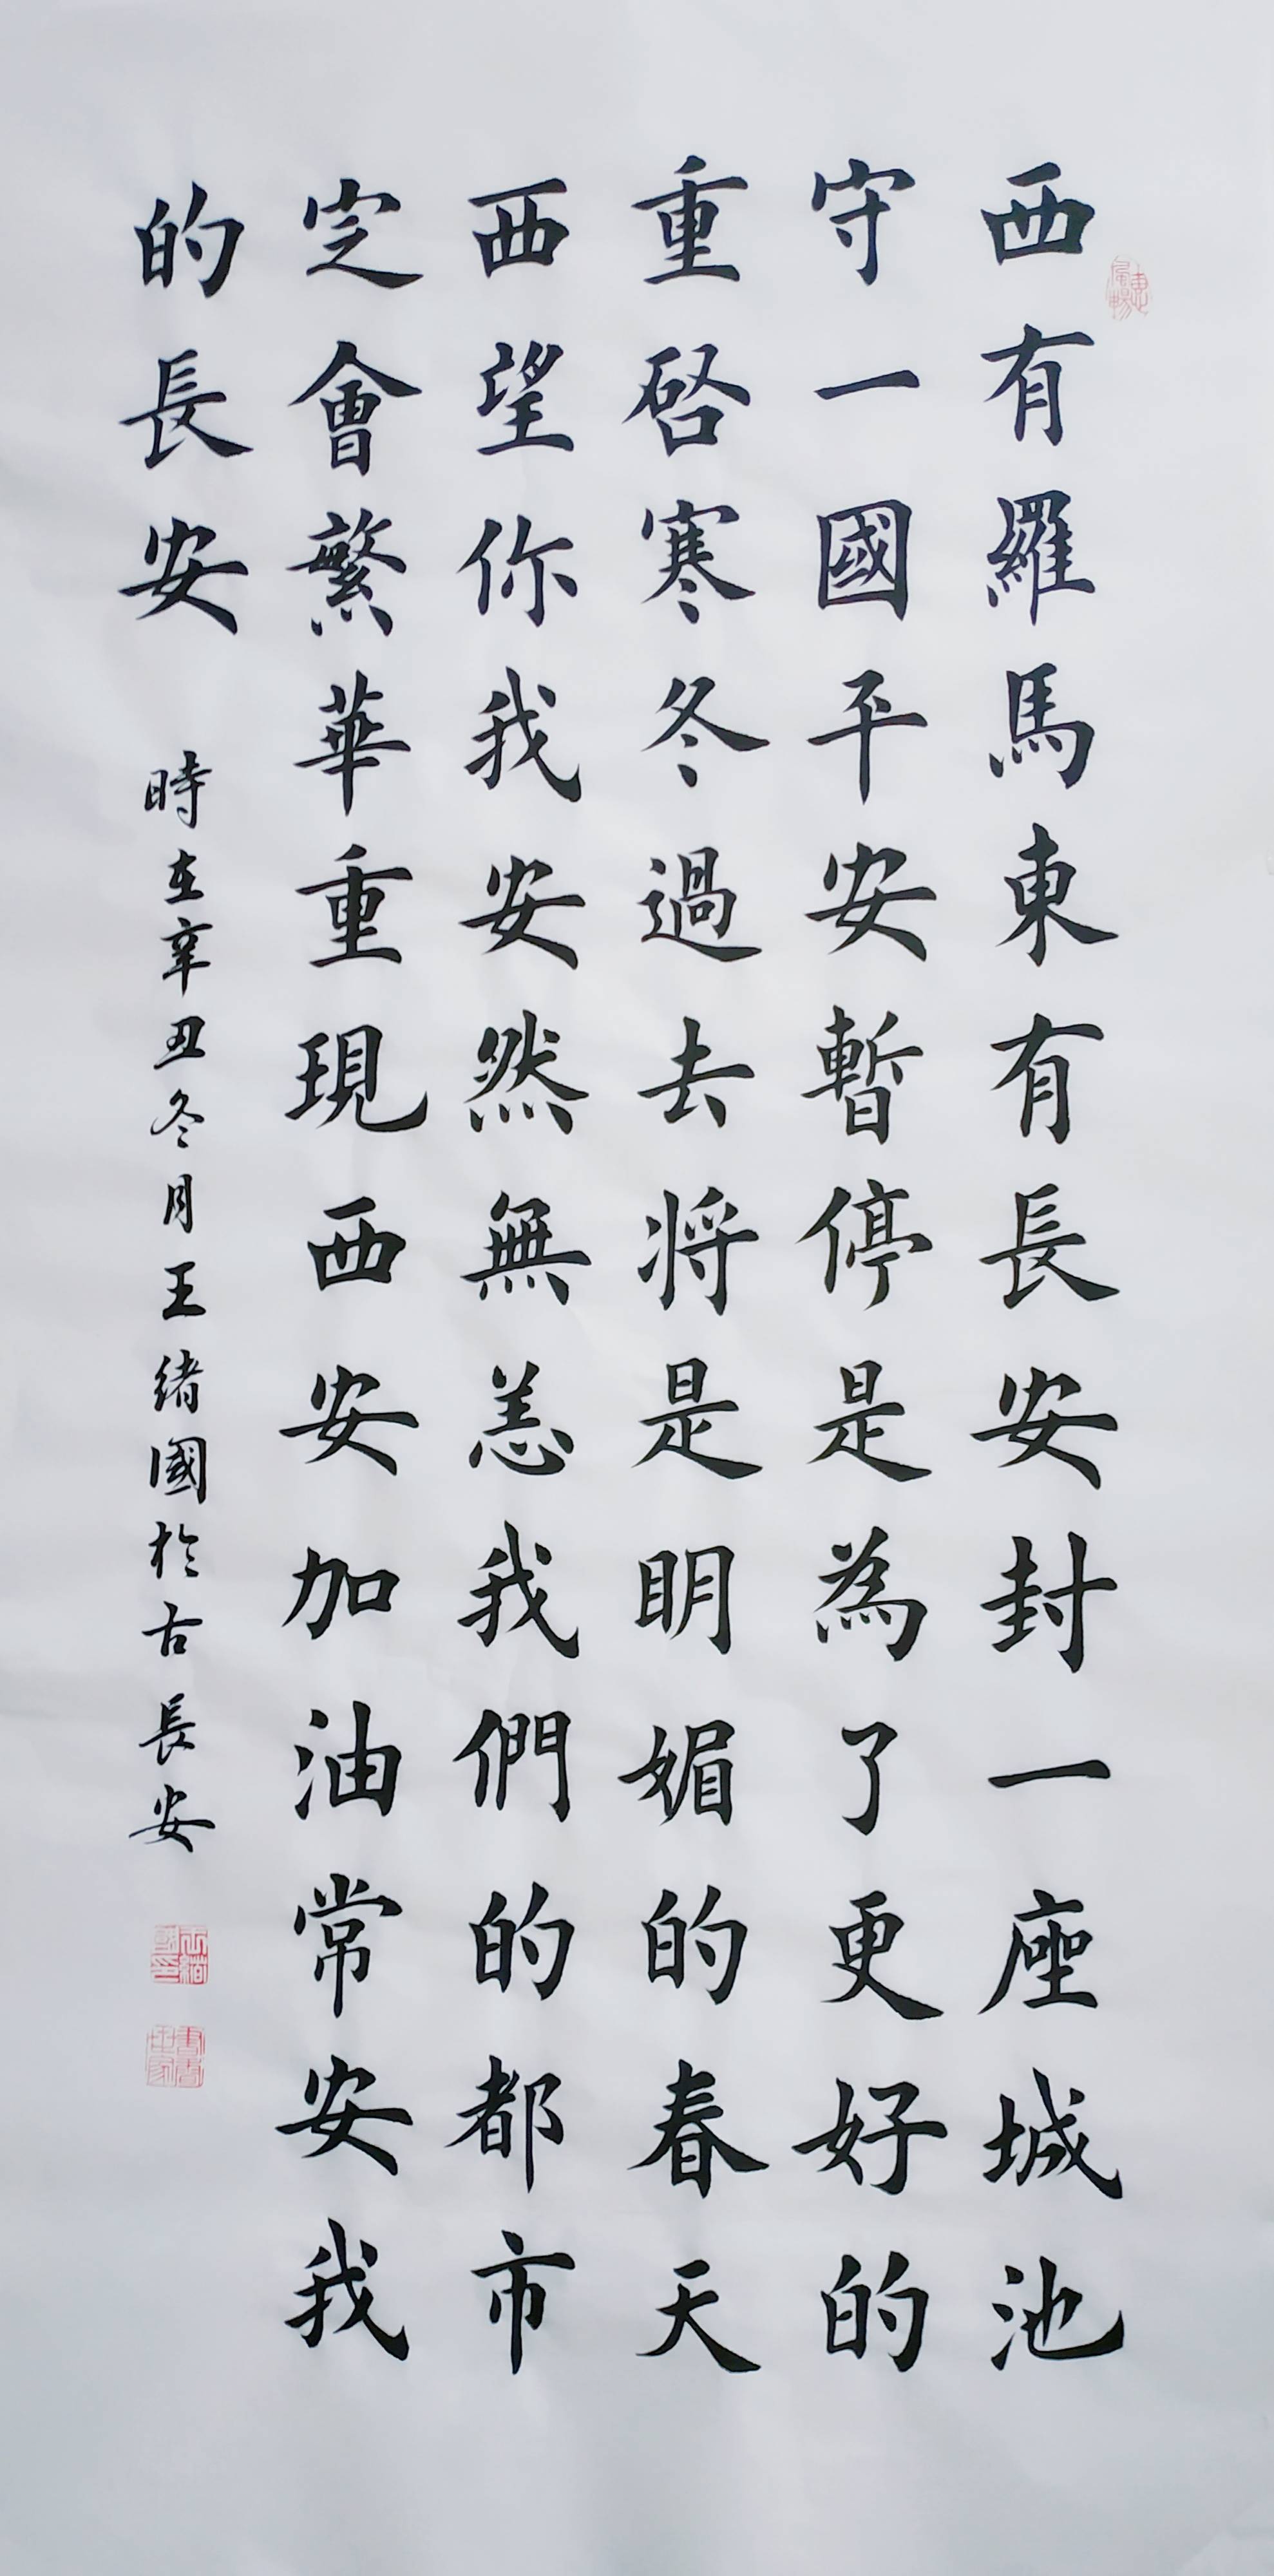 西有羅馬東有長安封一座城池
守一國平安暫停是為了更好的
重啓寒冬過去將是明媚的春天
西望你我安然無恙我們的都市
定會繁華重現西安加油常安我
的長安
時在辛丑冬月王緒國於古長安
惠風和暢
王緒國印
書香世家